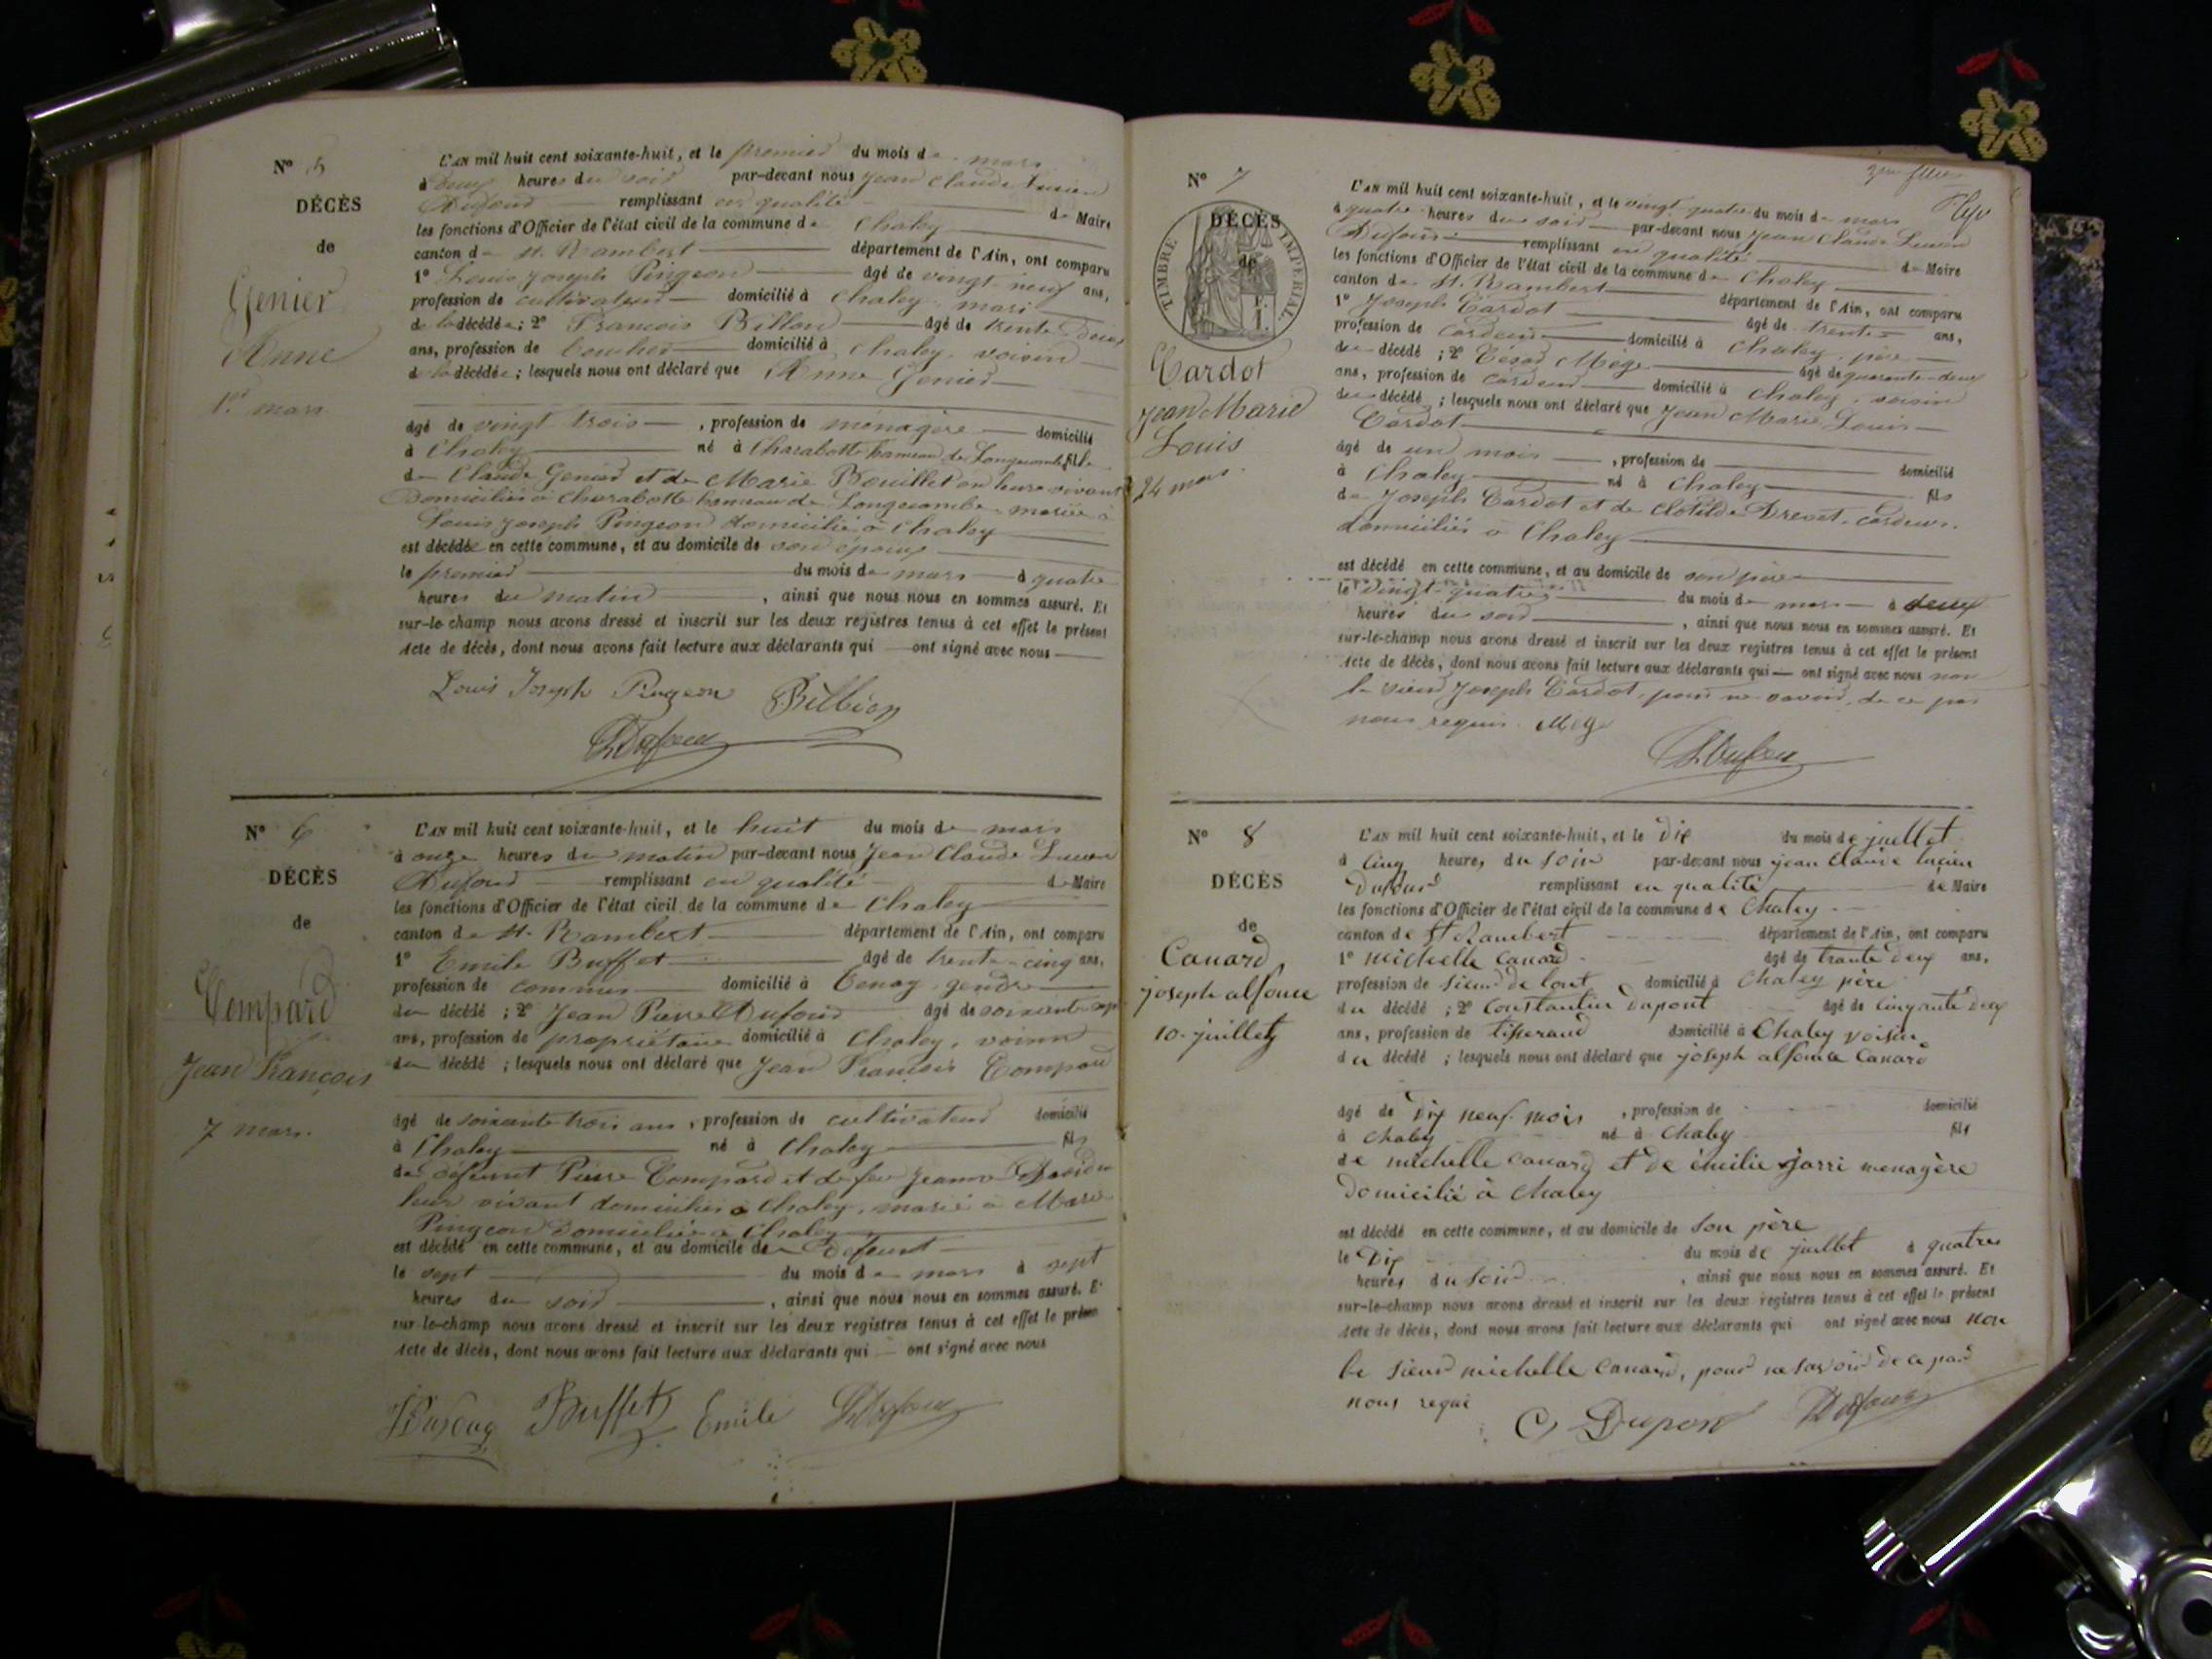 N° 5
DÉCÈS
de
Genier
Anne
1er mars
L'AN mil huit cent soixante-huit, et le premier du mois de mars
à deux heures du soir par-devant nous Jean Claude Lucien
Dufour remplissant en qualité de Maire
les fonctions d'Officier de l'état civil de la commune de Chaley
canton de St. Rambert département de l'Ain, ont comparu
1° Louis Joseph Pingeon âgé de vingt-neuf ans,
profession de cultivateur domicilié à Chaley, mari
de la décédée; 2° François Billion âgé de trente-deux
ans, profession de domicilié à Chaley, voisin
de la décédée; lesquels nous ont déclaré que Anne Genier
âgé de vingt trois , profession de ménagère domicilié
à Chaley né à Charabotte hameau de Longecombe fille
de Claude Genier et de Marie Bouillet en leur vivant
domiciliés à Charabotte hameau de Longecombe, mariée à
Louis Joseph Pingeon domicilié à Chaley
est décédée en cette commune, et au domicile de son époux
le premier du mois de mars à quatre
heures du matin , ainsi que nous nous en sommes assuré. Et
sur-le-champ nous avons dressé et inscrit sur les deux registres tenus à cet effet le présent
Acte de décès, dont nous avons fait lecture aux déclarants qui ont signé avec nous
Louis Joseph Pingeon Billion
Dufour
N° 6
DÉCÈS
de
Compard
Jean François
7 mars.
L'AN mil huit cent soixante-huit, et le huit du mois de mars
à onze heures du matin par-devant nous Jean Claude Lucien
Dufour remplissant en qualité de Maire
les fonctions d'Officier de l'état civil de la commune de Chaley
canton de St. Rambert département de l'Ain, ont comparu
1° Emile Buffet âgé de trente-cinq ans,
profession de commis domicilié à Tenay, gendre
du décédé; 2° Jean Pierre Dufour âgé de soixante-sept
ans, profession de propriétaire domicilié à Chaley, voisin
du décédé; lesquels nous ont déclaré que Jean François Compard
âgé de soixante-trois ans, profession de cultivateur domicilié
à Chaley né à Chaley fils
de défunt Pierre Compard et de feu Jeanne
leur vivant domiciliés à Chaley, marié à Marie
Pingeon domiciliée à Chaley
est décédé en cette commune, et au domicile de Défunt
le sept du mois de mars à sept
heures du soir , ainsi que nous nous en sommes assuré. Et
sur-le-champ nous avons dressé et inscrit sur les deux registres tenus à cet effet le présent
Acte de décès, dont nous avons fait lecture aux déclarants qui ont signé avec nous
Dufour Buffet Emile Dufour
N° 7
TIMBRE IMPÉRIAL
DÉCÈS
de
Cardot
Jean Marie
Louis
24 mars
L'AN mil huit cent soixante-huit, et le vingt-quatre du mois de mars
à quatre heures du soir par-devant nous Jean Claude Lucien
Dufour remplissant en qualité de Maire
les fonctions d'Officier de l'état civil de la commune de Chaley
canton de St. Rambert département de l'Ain, ont comparu
1° Joseph Cardot âgé de trente ans,
profession de cardeur domicilié à Chaley, père
du décédé; 2° César Mège âgé de quarante-deux
ans, profession de cardeur domicilié à Chaley, voisin
du décédé; lesquels nous ont déclaré que Jean Marie Louis
Cardot
âgé de un mois , profession de domicilié
à Chaley né à Chaley fils
de Joseph Cardot et de Clotilde Drevet, cardeurs,
domiciliés à Chaley
est décédé en cette commune, et au domicile de son père
le vingt-quatre du mois de mars à deux
heures du soir , ainsi que nous nous en sommes assuré. Et
sur-le-champ nous avons dressé et inscrit sur les deux registres tenus à cet effet le présent
Acte de décès, dont nous avons fait lecture aux déclarants qui ont signé avec nous non
le sieur Joseph Cardot, pour ne savoir, de ce par
nous requis. Mège
Dufour
N° 8
DÉCÈS
de
Canard
joseph alfonce
10 juillet
L'AN mil huit cent soixante-huit, et le Dix du mois de juillet
à cinq heures du soir par-devant nous jean Claude lucien
Dufour remplissant en qualité de Maire
les fonctions d'Officier de l'état civil de la commune de Chaley
canton de St Rambert département de l'Ain, ont comparu
1° michelle Canard âgé de trante deux ans,
profession de sieur de lont domicilié à Chaley père
du décédé; 2° Constantin Dupont âgé de cinqante deux
ans, profession de tisserand domicilié à Chaley voisin
du décédé; lesquels nous ont déclaré que joseph alfonce Canard
âgé de Dix neuf mois , profession de domicilié
à Chaley né à Chaley fils
de michelle canard et de émilie jarri menagère
Domicilié à Chaley
est décédé en cette commune, et au domicile de son père
le Dix du mois de juillet à quatres
heures du soir , ainsi que nous nous en sommes assuré. Et
sur-le-champ nous avons dressé et inscrit sur les deux registres tenus à cet effet le présent
Acte de décès, dont nous avons fait lecture aux déclarants qui ont signé avec nous non
le sieur michelle Canard, pour ne savoir de ce par
nous requi
C Dupont Dufour